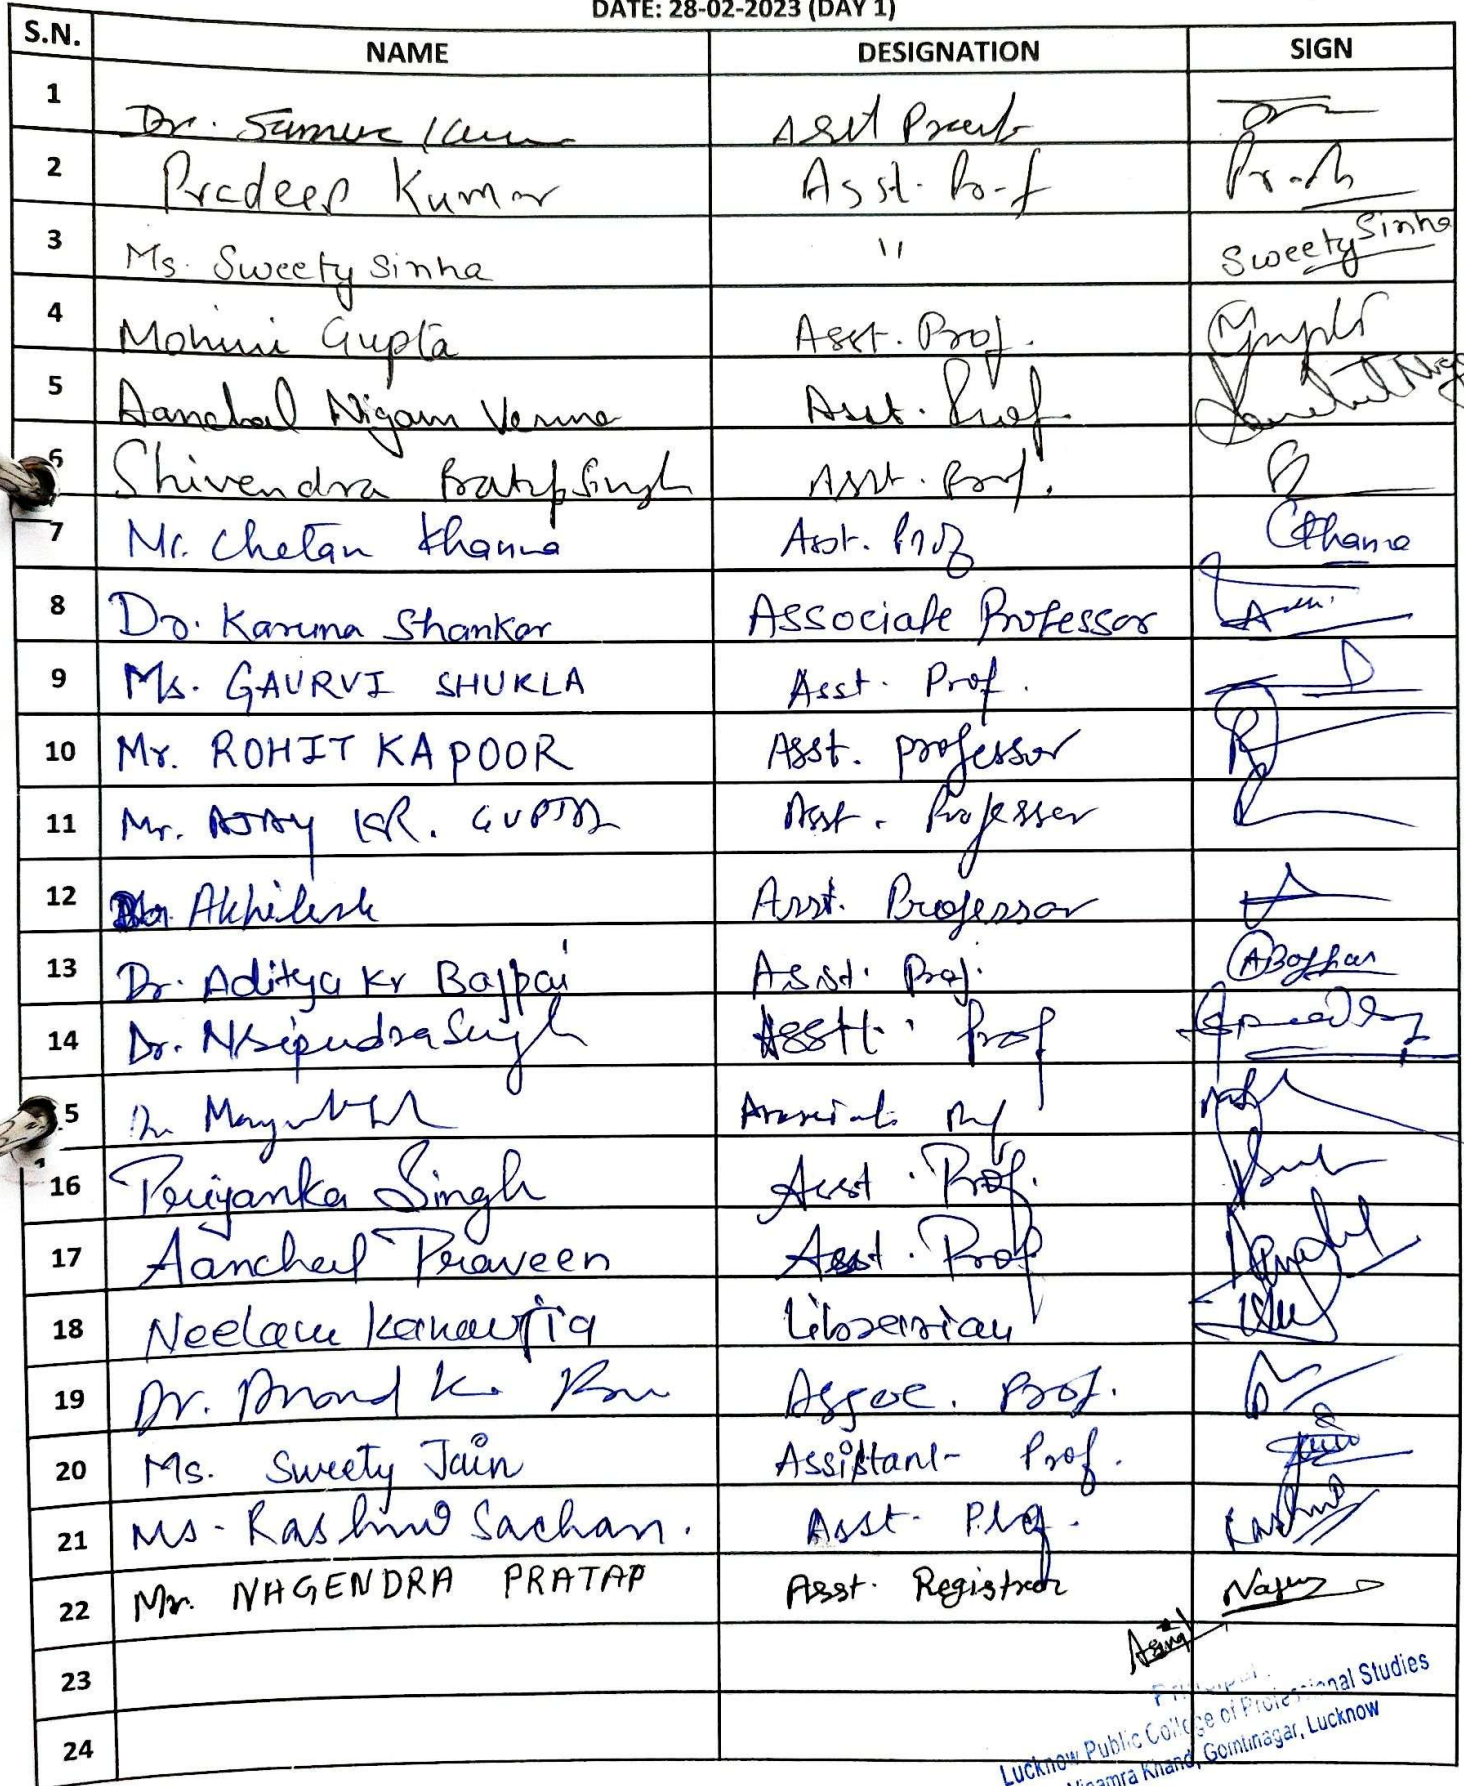 DATE: 28-02-2023 (DAY 1)
S.N. NAME DESIGNATION SIGN
1 Dr. Asst
2 Pradeep Kumar Asst. Prof
3 Ms. Sweety Sinha " Sweety Sinha
4 Mohini Gupta Asst. Prof. MGupta
5 Aanchal Nigam Verma Asst. Prof.
6 Shivendra Pratap Singh Asst. Prof.
7 Mr. Chetan Khanna Asst. Prof CKhanna
8 Dr. Karuna Shankar Associate Professor
9 Ms. GAURVI SHUKLA Asst. Prof.
10 Mr. ROHIT KAPOOR Asst. professor
11 Mr. AJAY KR. GUPTA Asst. Professor
12 Akhilesh Asst. Professor
13 Dr. Aditya Kr Bajpai Asst. Prof. ABajpai
14 Dr. Singh Asstt. Prof
5 Dr Associate Prof
16 Priyanka Singh Asst. Prof.
17 Aanchal Praveen Asst. Prof
18 Neelam Kanaujia Librarian
19 Dr. Anand K. Assoc. Prof.
20 Ms. Sweety Jain Assistant Prof.
21 Ms. Rashmi Sachan. Asst. Prof. Rashmi
22 Mr. NAGENDRA PRATAP Asst. Registrar
23
Principal
24
Lucknow Public College of Professional Studies
Vinamra Khand, Gomtinagar, Lucknow